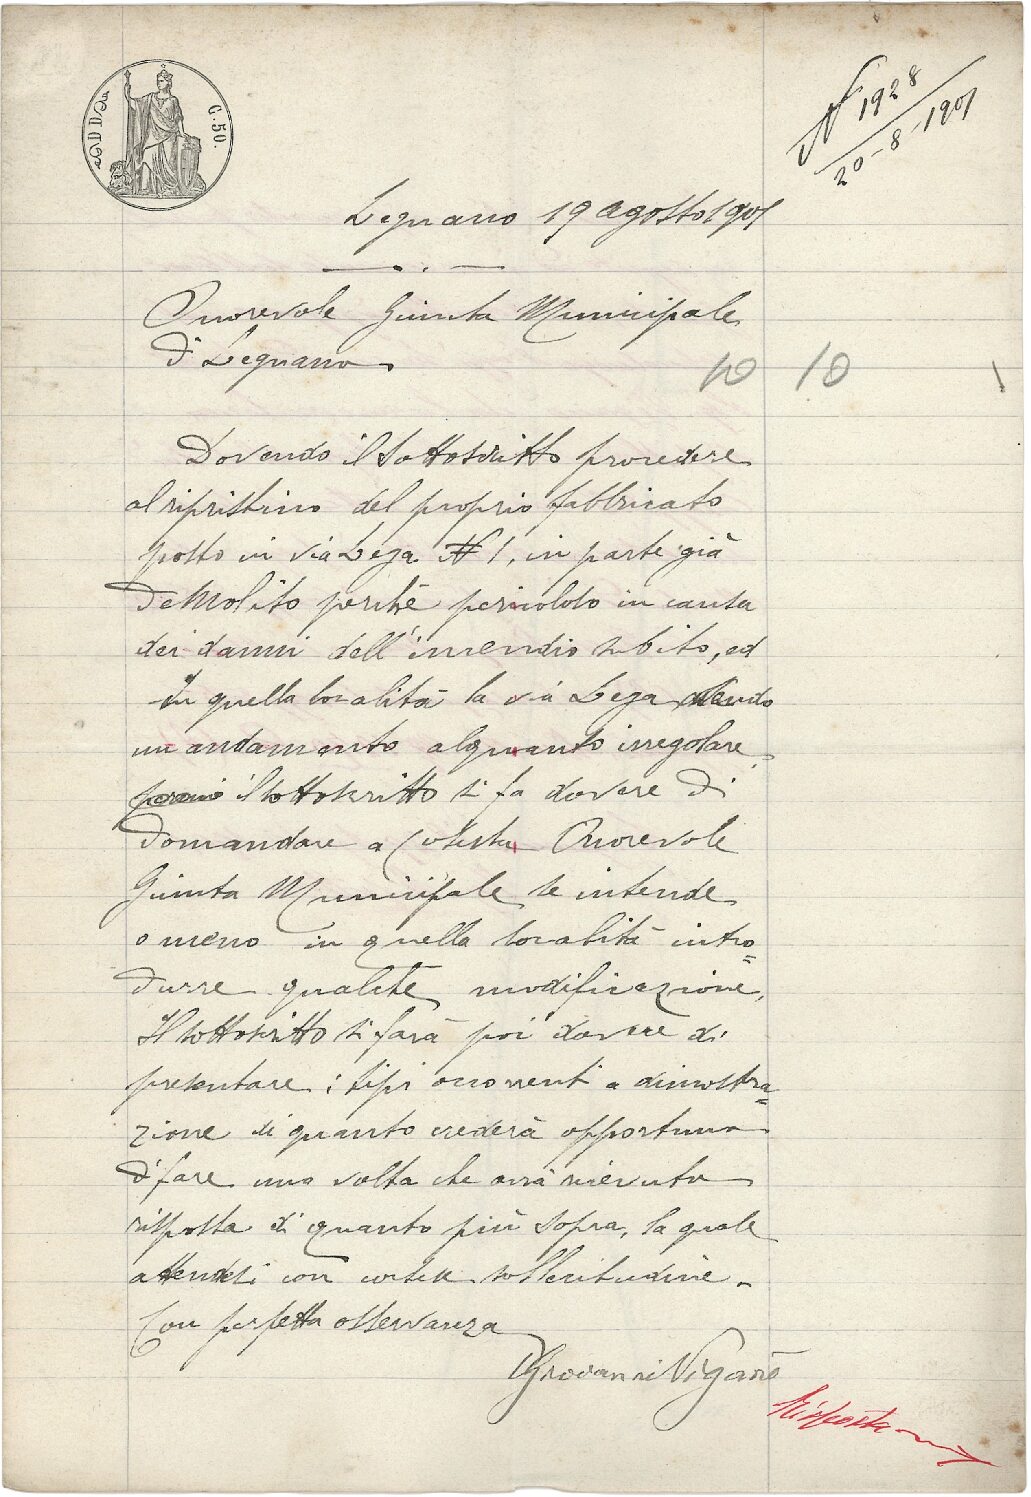 C. 50.
N 1928
20-8-1901
Legnano 19 agosto 1901
Onorevole Giunta Municipale
di Legnano
10 10
Dovendo il sottoscritto procedere
al ripristino del proprio fabbricato
posto in via Lega N 1, in parte già
demolito perchè pericoloso in causa
dei danni dell'incendio subito, ed
in quella località la via Lega avendo
un andamento alquanto irregolare,
perciò il sottoscritto si fa dovere di
domandare a Codesta Onorevole
Giunta Municipale se intende
o meno in quella località intro=
durre qualche modificazione,
Il sottoscritto si farà poi dovere di
presentare i tipi occorrenti a dimostra=
zione di quanto crederà opportuno
di fare una volta che avrà ricevuto
risposta di quanto più sopra, la quale
attendesi con cortese sollecitudine.
Con perfetta osservanza
Giovanni Viganò
Risposta